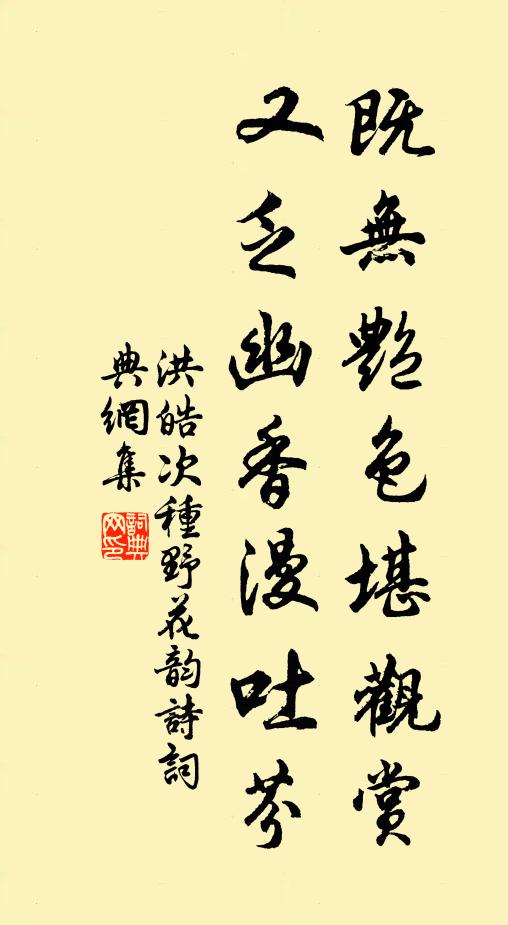 既無艷色堪觀賞
又乏幽香漫吐芬
洪皓次種野花韵詩詞
典網集
詞典
网印